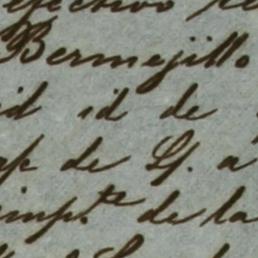 efectivo re
Bermejillo
id id de
de Sf. a
imp.te de la